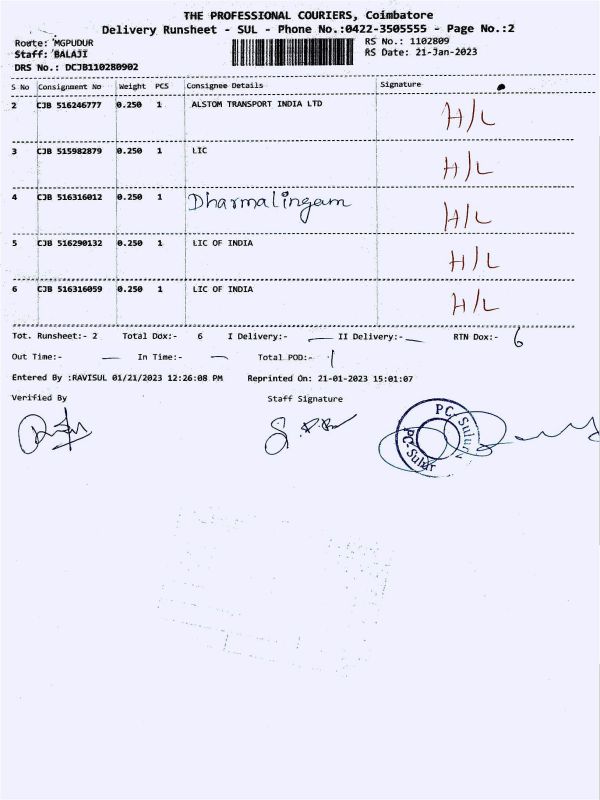 THE PROFESSIONAL COURIERS, Coimbatore
Delivery Runsheet - SUL - Phone No.:0422-3505555 - Page No.:2
Route: MGPUDUR RS No.: 1102809
Staff: BALAJI RS Date: 21-Jan-2023
DRS No.: DCJB110280902
S No Consignment No Weight PCS Consignee Details Signature
2 CJB 516246777 0.250 1 ALSTOM TRANSPORT INDIA LTD H/L
3 CJB 515982879 0.250 1 LIC H/L
4 CJB 516316012 0.250 1 Dharmalingam H/L
5 CJB 516290132 0.250 1 LIC OF INDIA H/L
6 CJB 516316059 0.250 1 LIC OF INDIA H/L
Tot. Runsheet:- 2 Total Dox:- 6 I Delivery:- — II Delivery:- — RTN Dox:- 6
Out Time:- — In Time:- — Total POD:- 1
Entered By :RAVISUL 01/21/2023 12:26:08 PM Reprinted On: 21-01-2023 15:01:07
Verified By Staff Signature
PC, Sulur
PC-Sulur